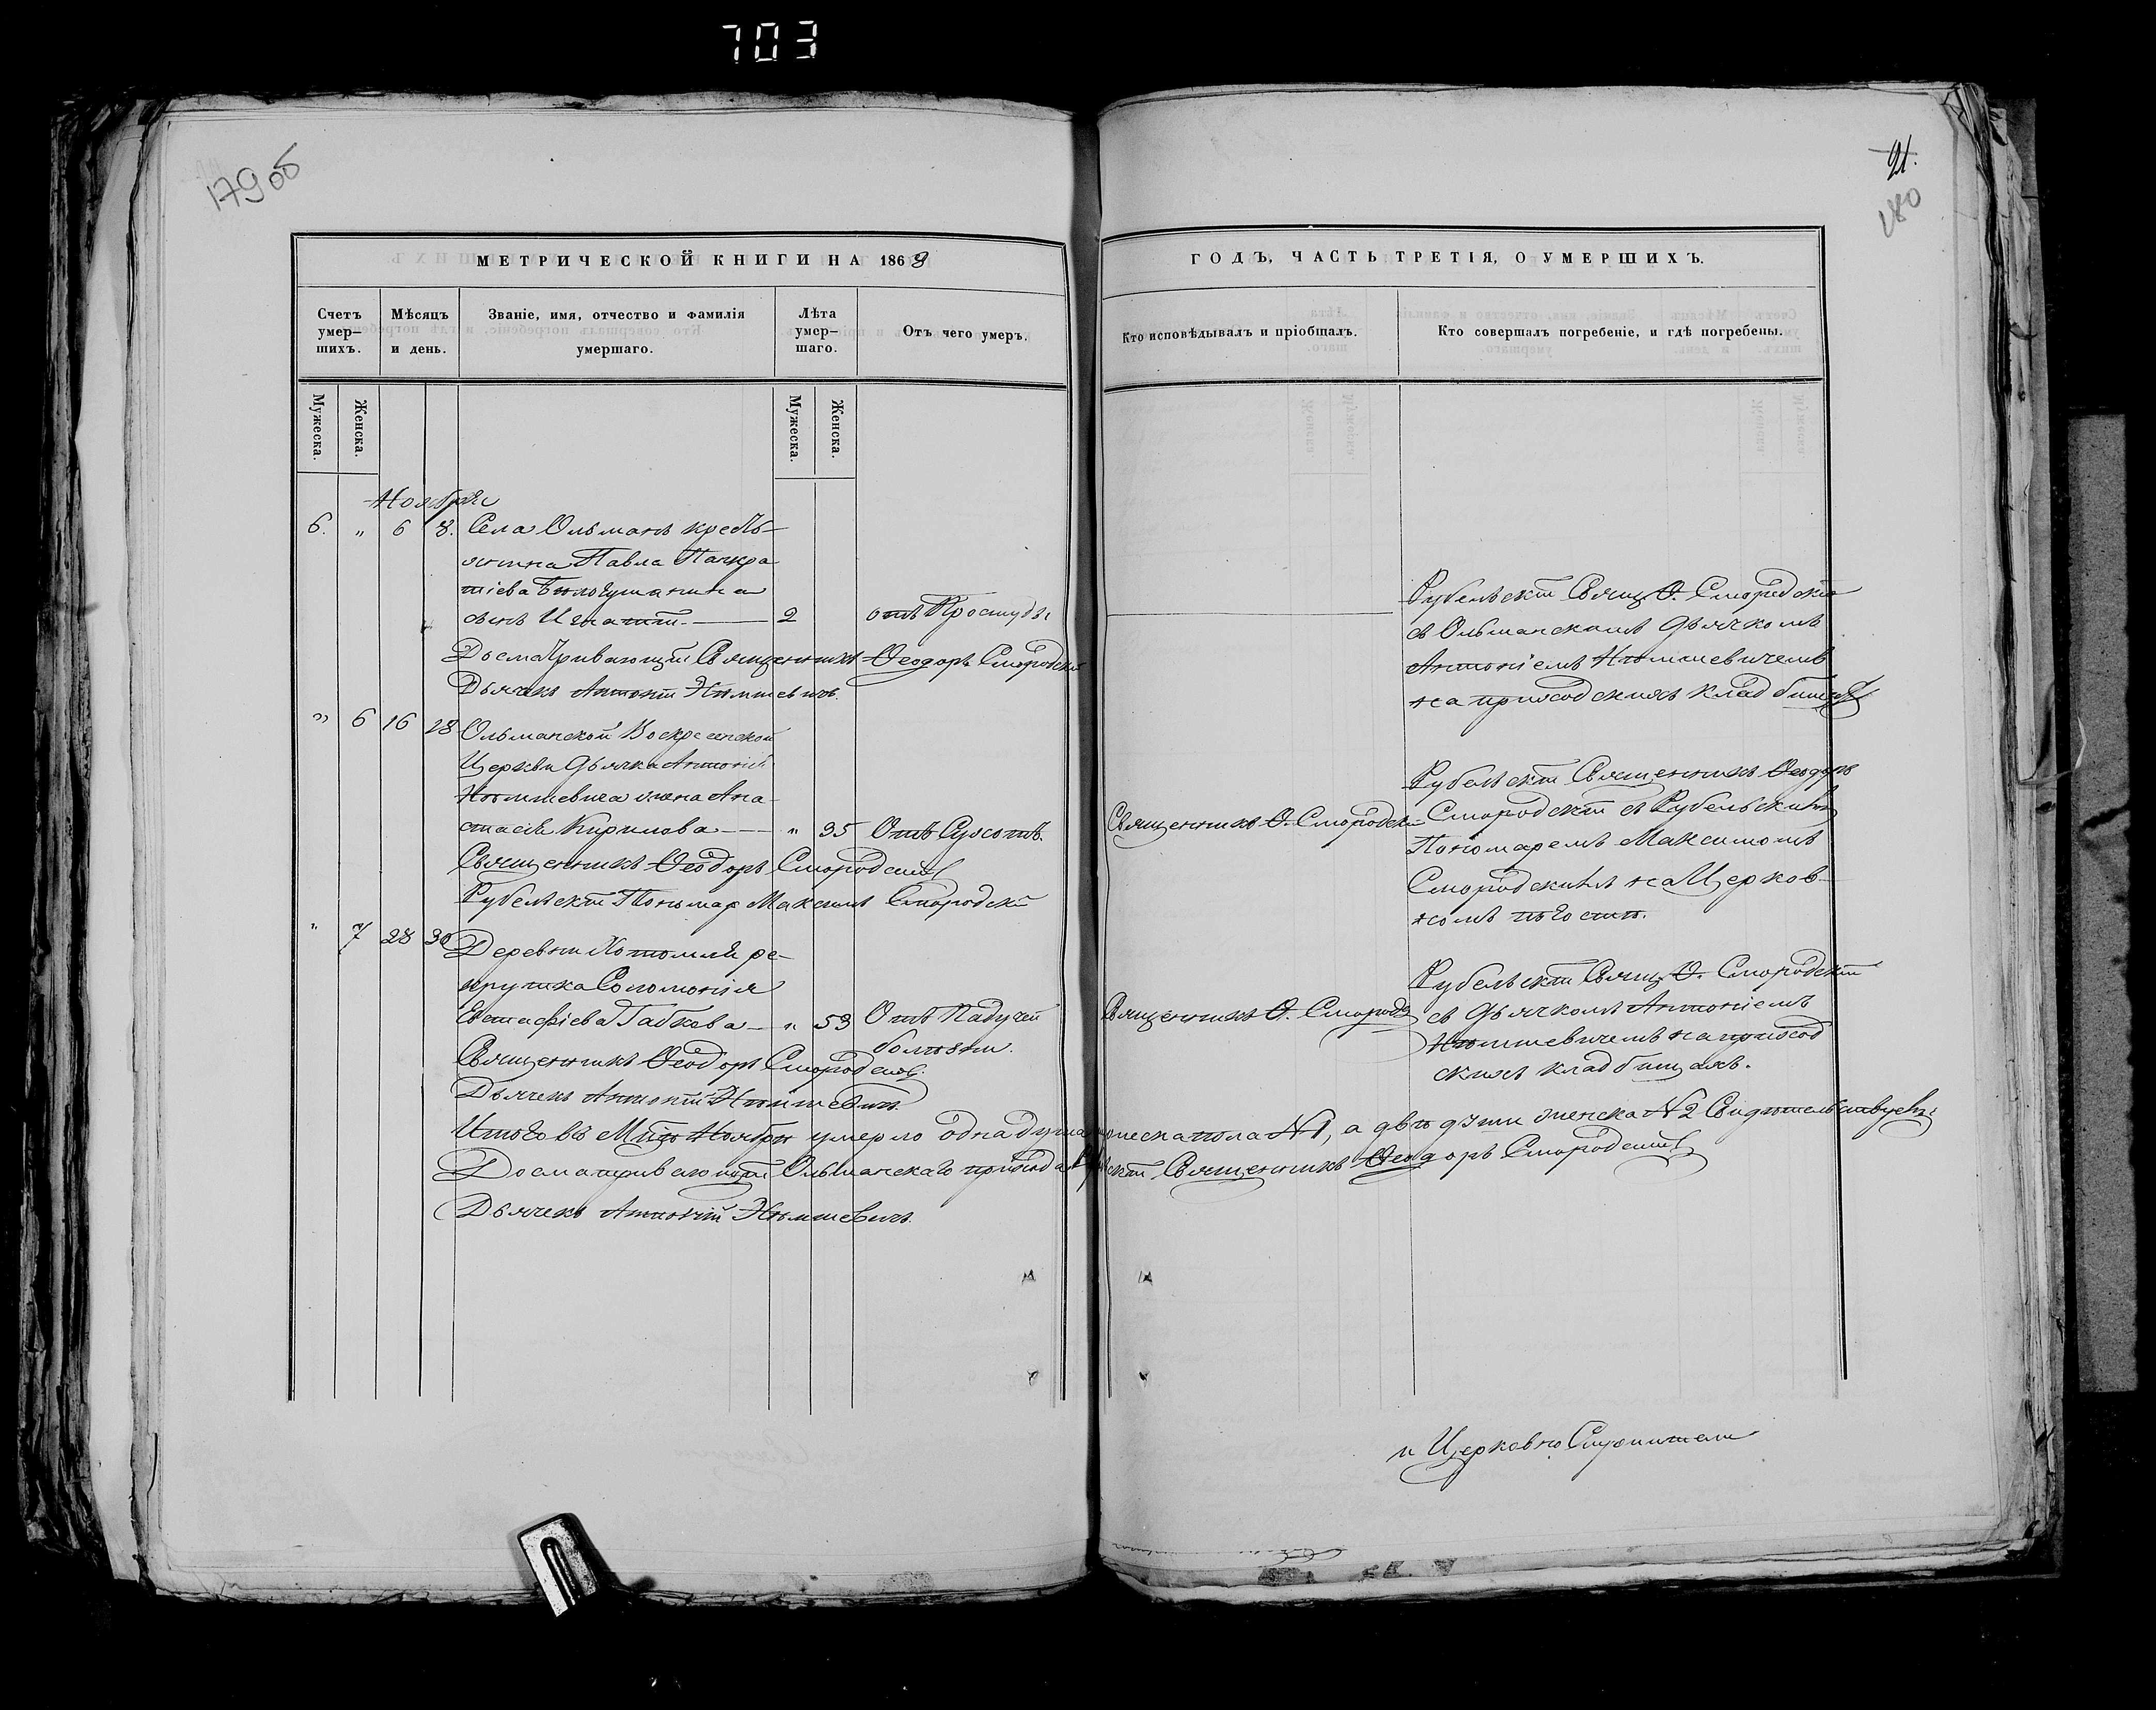 703
179 об
21.
180
МЕТРИЧЕСКОЙ КНИГИ НА 1868
ГОДЪ, ЧАСТЬ ТРЕТІЯ, О УМЕРШИХЪ.
Счетъ умер-шихъ.
Мѣсяцъ и день.
Званіе, имя, отчество и фамилія умершаго.
Лѣта умер-шаго.
Отъ чего умеръ.
Кто исповѣдывалъ и пріобщалъ.
Кто совершалъ погребеніе, и гдѣ погребены.
Мужеска.
Женска.
Мужеска.
Женска.
Ноября
6. " 6 8. Села Ольманъ кресть-
янина Павла Панкра
тіева
сынъ Игнатій 2 отъ Простуды
Досматривающій Священникъ Ѳеодоръ Смородскій
Дьячекъ Антоній Нѣмшевичъ.
Рубельскій Свящ. Ѳ. Смородскій
съ Ольманскимъ Дьячкомъ
Антоніемъ Нѣмшевичемъ
на приходскихъ кладбищахъ
" 6 16 18 Ольманской Воскресенской
Церкви Дьячка Антонія
Нѣмшевича жена Ана-
стасія Кирилова " 35 Отъ Сухотъ.
Священникъ Ѳеодоръ Смородскій
Рубельскій Пономарь Максимъ Смородскій
Священникъ Ѳ. Смородскій
Рубельскій Священникъ Ѳеодоръ
Смородскій съ Рубельскимъ
Пономаремъ Максимомъ
Смородскимъ на Церков-
номъ погостѣ.
" 7 28 30 Деревни Хотомля ре-
крутка Соломонія
Евстафіева Габкева " 53 Отъ Падучей
болѣзни.
Священникъ Ѳеодоръ Смородскій.
Дьячекъ Антоній Нѣмшевичъ
Священникъ Ѳ. Смородс
Рубельскій Свящ. Ѳ. Смородскій
съ Дьячкомъ Антоніемъ
Нѣмшевичемъ на приход
скихъ кладбищахъ.
Итого въ Мцѣ Ноябрѣ умерло одна душа мужеска пола №1, а двѣ души женска №2 Свидѣтельствуемъ
Досматривающій Ольманскаго прихода Священникъ Ѳеодоръ Смородскій
Дьячекъ Антоній Нѣмшевичъ.
и Церковно Служители